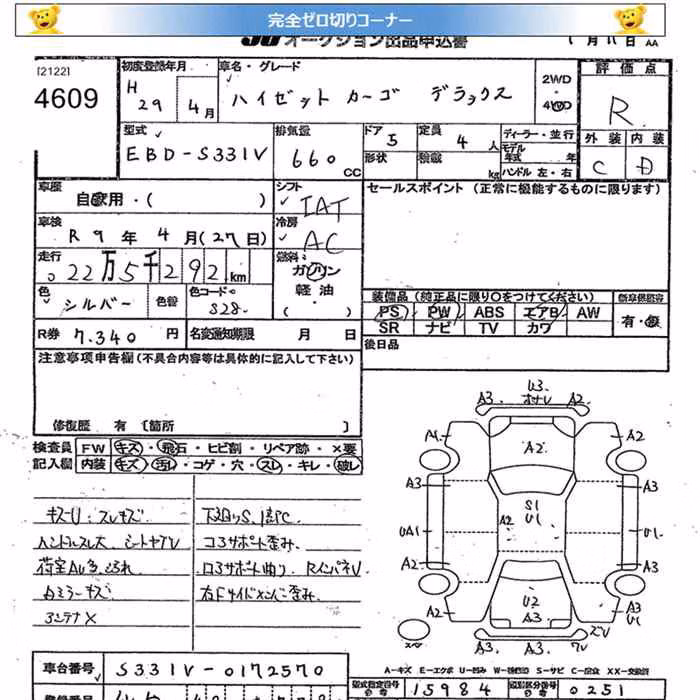 完全ゼロ切りコーナー
JU オークション出品申込書 1月11日 AA
[2122]
4609
初度登録年月 H 29 4月
車名・グレード ハイゼット カーゴ デラックス
2WD・4WD
評価点 R
外装 内装
C D
型式 EBD-S331V
排気量 660 CC
ドア 5
定員 4人
形状
積載 kg
ディーラー・並行
モデル年式 年
ハンドル 左・右
車歴 自家用・( )
シフト IAT
セールスポイント (正常に機能するものに限ります)
車検 R 9年 4月(27日)
冷房 AC
走行 22万5千292km
燃料 ガソリン 軽油・( )
色 シルバー 色替 色コード S28
装備品 (純正品に限り〇をつけてください)
PS PW ABS エアB AW
SR ナビ TV カワ
新車保証書
有・無
R券 7.340円
名変通知期限 月 日
後日品
注意事項申告欄(不具合内容等は具体的に記入して下さい)
修復歴 有 [箇所 ]
検査員記入欄
FW キズ・飛石・ヒビ割・リペア跡・×要
内装 キズ・汚れ・コゲ・穴・スレ・キレ・破レ
キズU:スレキズ
ハンドルスレ大
下廻りS
コアサポート歪み
荷室AU多
コアサポート曲り RインパネU
右ミラーキズ
右Fサイドメンバー歪み
アンテナX
U3
A3 ホナレ A2
A1 A2 A2
A3 A3
S1
U1
UA1 A2 U1
A2 A3
A2 U2 A1
A3
A3 A3
スペア
A-キズ E-エクボ U-凹み W-補修跡 S-サビ C-腐食 XX-交換済
車台番号 S331V-0172570
型式指定番号 15984
類別区分番号 0251